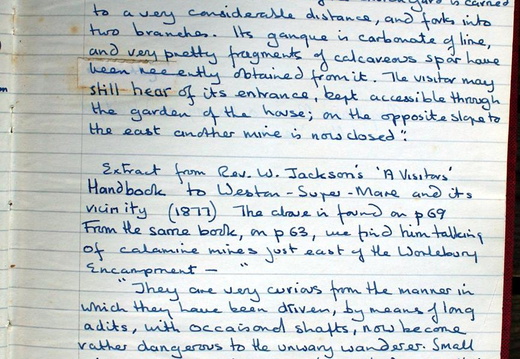 is carried
to a very considerable distance, and forks into
two branches. Its gangue is carbonate of lime,
and very pretty fragments of calcareous spar have
been recently obtained from it. The visitor may
still hear of its entrance, kept accessible through
the garden of the house; on the opposite slope to
the east another mine is now closed".
Extract from Rev. W. Jackson's 'A Visitors'
Handbook to Weston-Super-Mare and its
vicinity (1877) The above is found on p69
From the same book, on p63, we find him talking
of calamine mines just east of the Worlebury
Encampment — "
"They are very curious from the manner in
which they have been driven, by means of long
adits, with occaisonal shafts, now become
rather dangerous to the unwary wanderer. Small